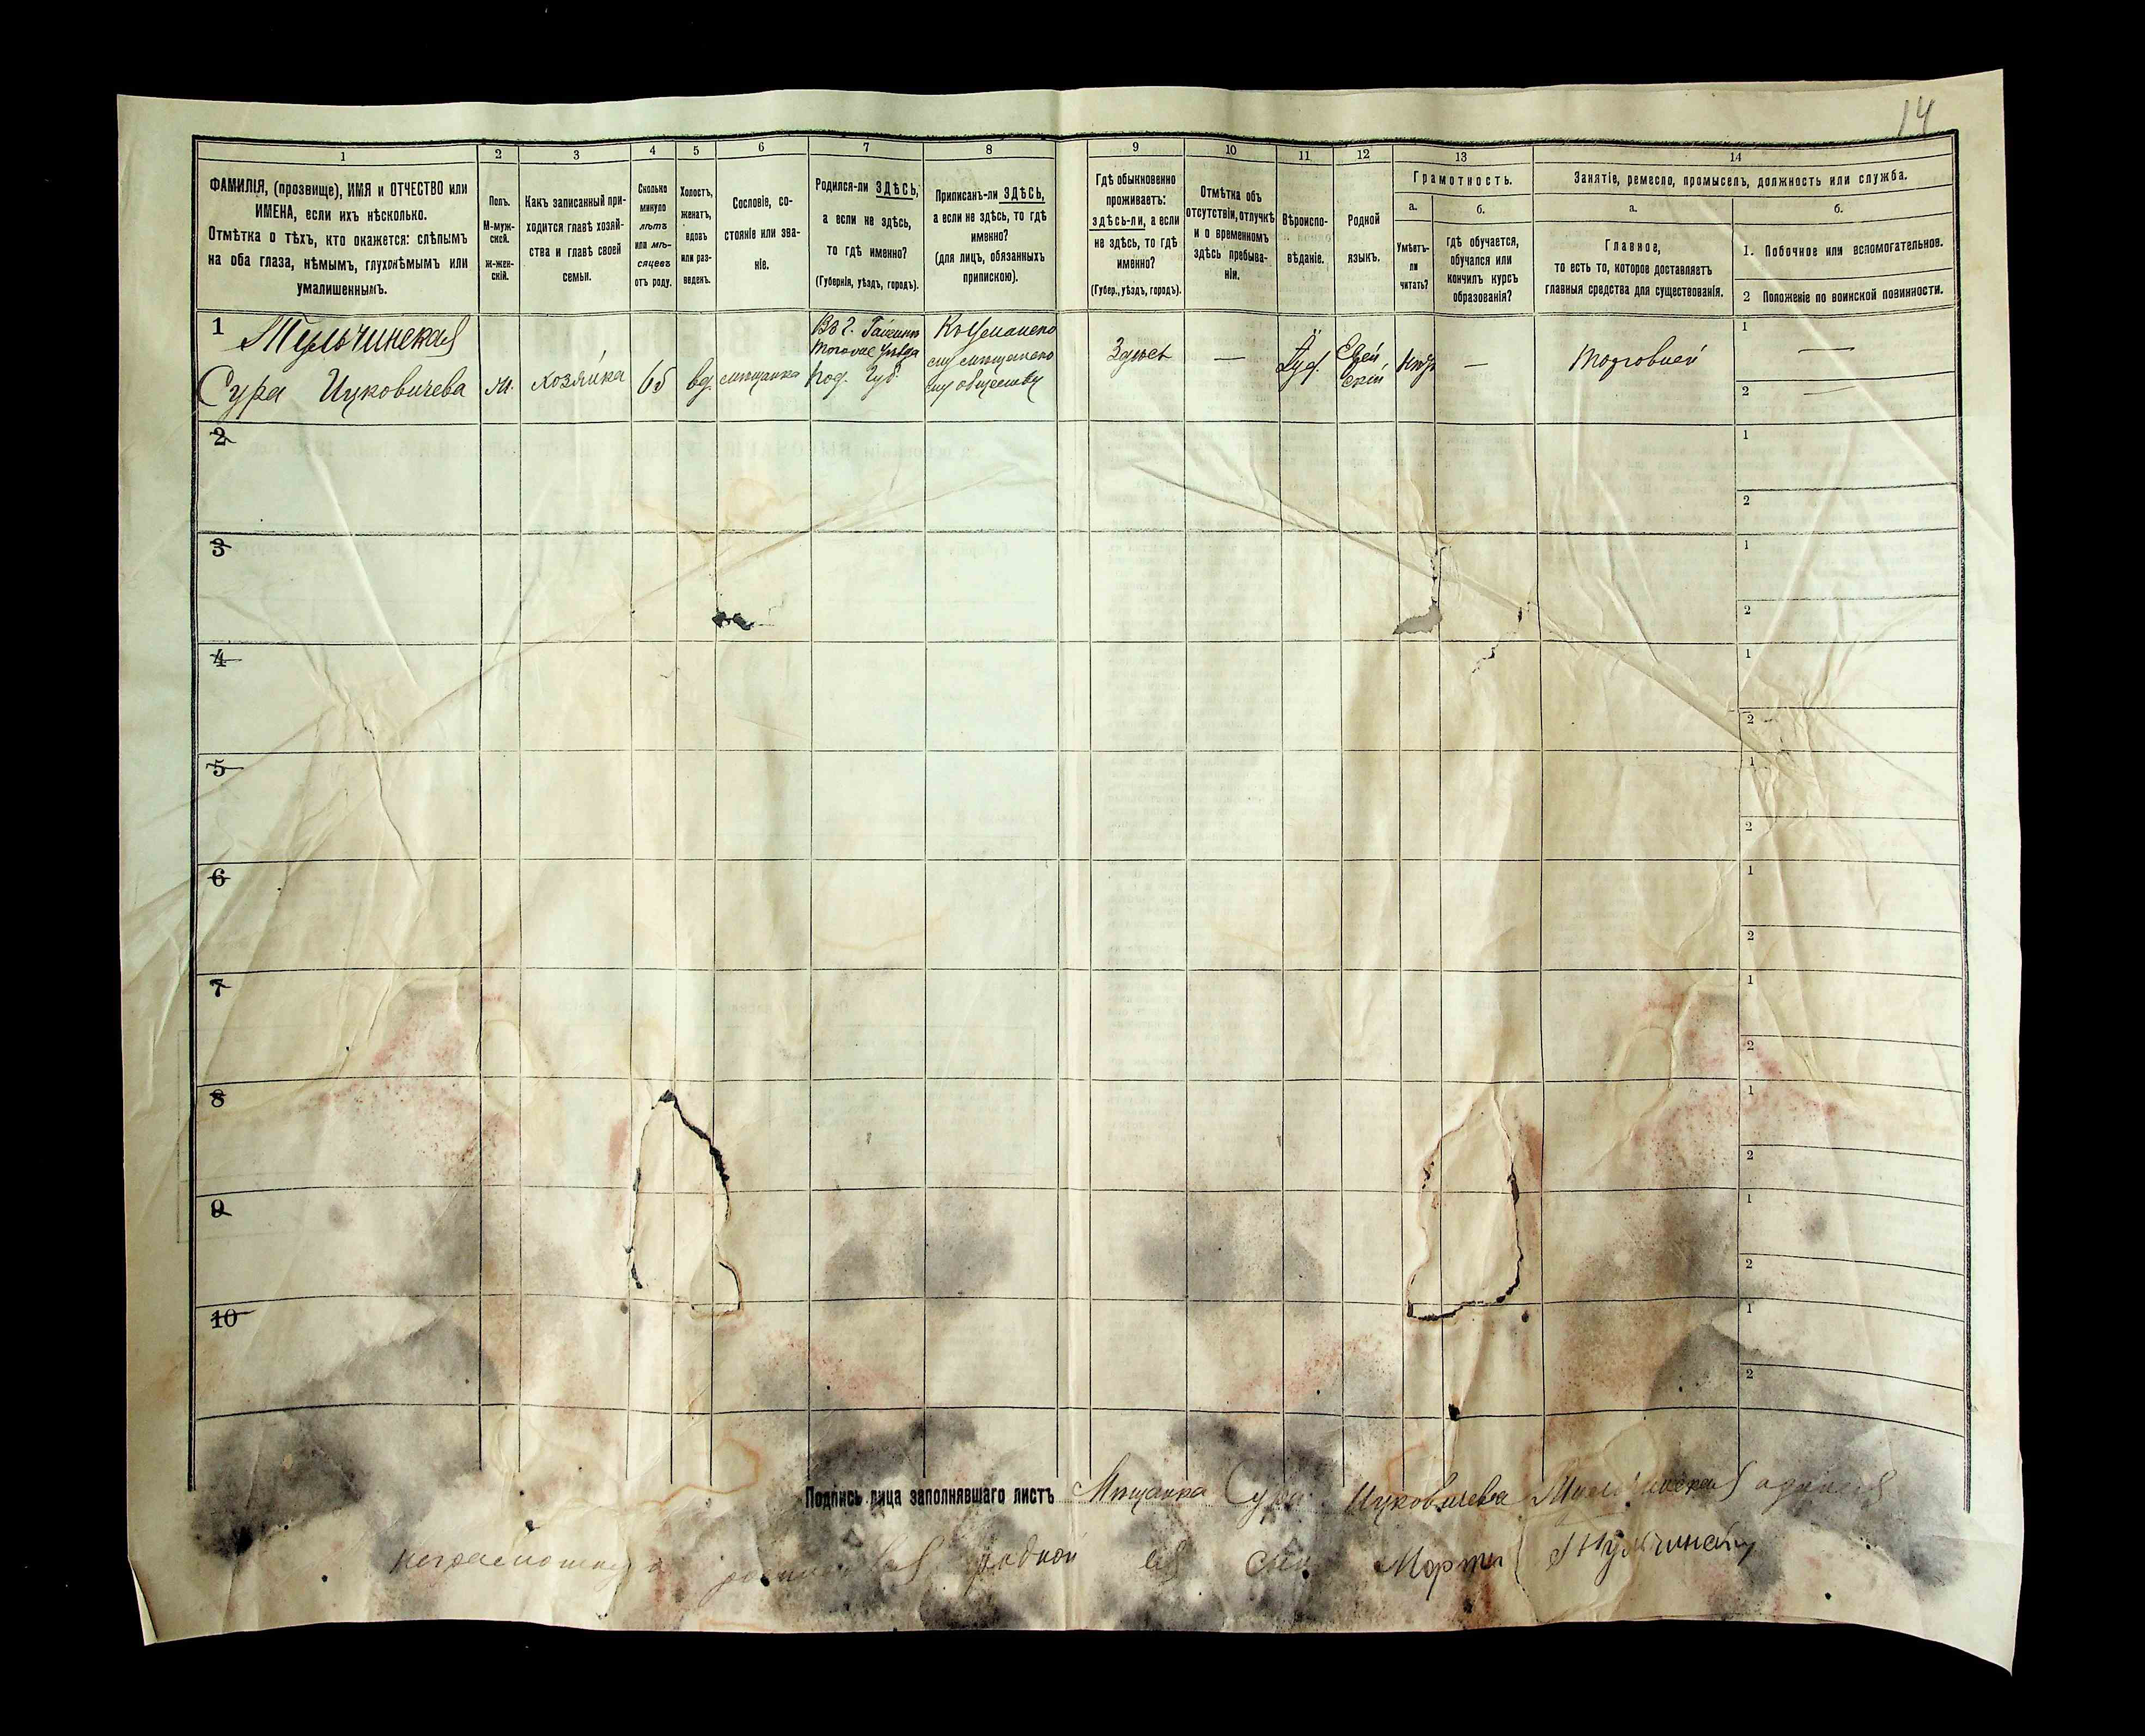 14
1
2
3
4
5
6
7
8
9
10
11
12
13
14
ФАМИЛІЯ, (прозвище), ИМЯ и ОТЧЕСТВО или
ИМЕНА, если ихъ нѣсколько.
Отмѣтка о тѣхъ, кто окажется: слѣпымъ
на оба глаза, нѣмымъ, глухонѣмымъ или
умалишеннымъ.
Полъ.
М-муж-
ской.
ж-жен-
скій.
Какъ записанный при-
ходится главѣ хозяй-
ства и главѣ своей
семьи.
Сколько
минуло
лѣтъ
или мѣ-
сяцевъ
отъ роду.
Холостъ,
женатъ,
вдовъ
или раз-
веденъ.
Сословіе, со-
стояніе или зва-
ніе.
Родился-ли ЗДѢСЬ,
а если не здѣсь,
то гдѣ именно?
(Губернія, уѣздъ, городъ).
Приписанъ-ли ЗДѢСЬ,
а если не здѣсь, то гдѣ
именно?
(для лицъ, обязанныхъ
припискою).
Гдѣ обыкновенно
проживаетъ:
здѣсь-ли, а если
не здѣсь, то гдѣ
именно?
(Губер., уѣздъ, городъ).
Отмѣтка объ
отсутствіи, отлучкѣ
и о временномъ
здѣсь пребыва-
ніи.
Вѣроиспо-
вѣданіе.
Родной
языкъ.
Грамотность.
а.
Умѣетъ-
ли
читать?
б.
гдѣ обучается,
обучался или
кончилъ курсъ
образованія?
Занятіе, ремесло, промыселъ, должность или служба.
а.
Главное,
то есть то, которое доставляетъ
главныя средства для существованія.
б.
1. Побочное или вспомогательное.
2 Положеніе по воинской повинности.
1
Тульчинская
Сура Ицковичева
хозяйка
65
вд.
мѣщанка
Въ г. Гайсинѣ
того же уѣзда
Под. Губ.
Къ Уманско
му мѣщанско
му обществу
Здѣсь
—
Іуд.
Еврей
скій
—
торговлей
1
—
2
—
2
1
2
3
1
2
4
1
2
5
1
2
6
1
2
7
1
2
8
1
2
9
1
2
10
1
2
Подпись лица заполнявшаго листъ Мѣщанка Сура Ицковичева Тульчинская
родной ея